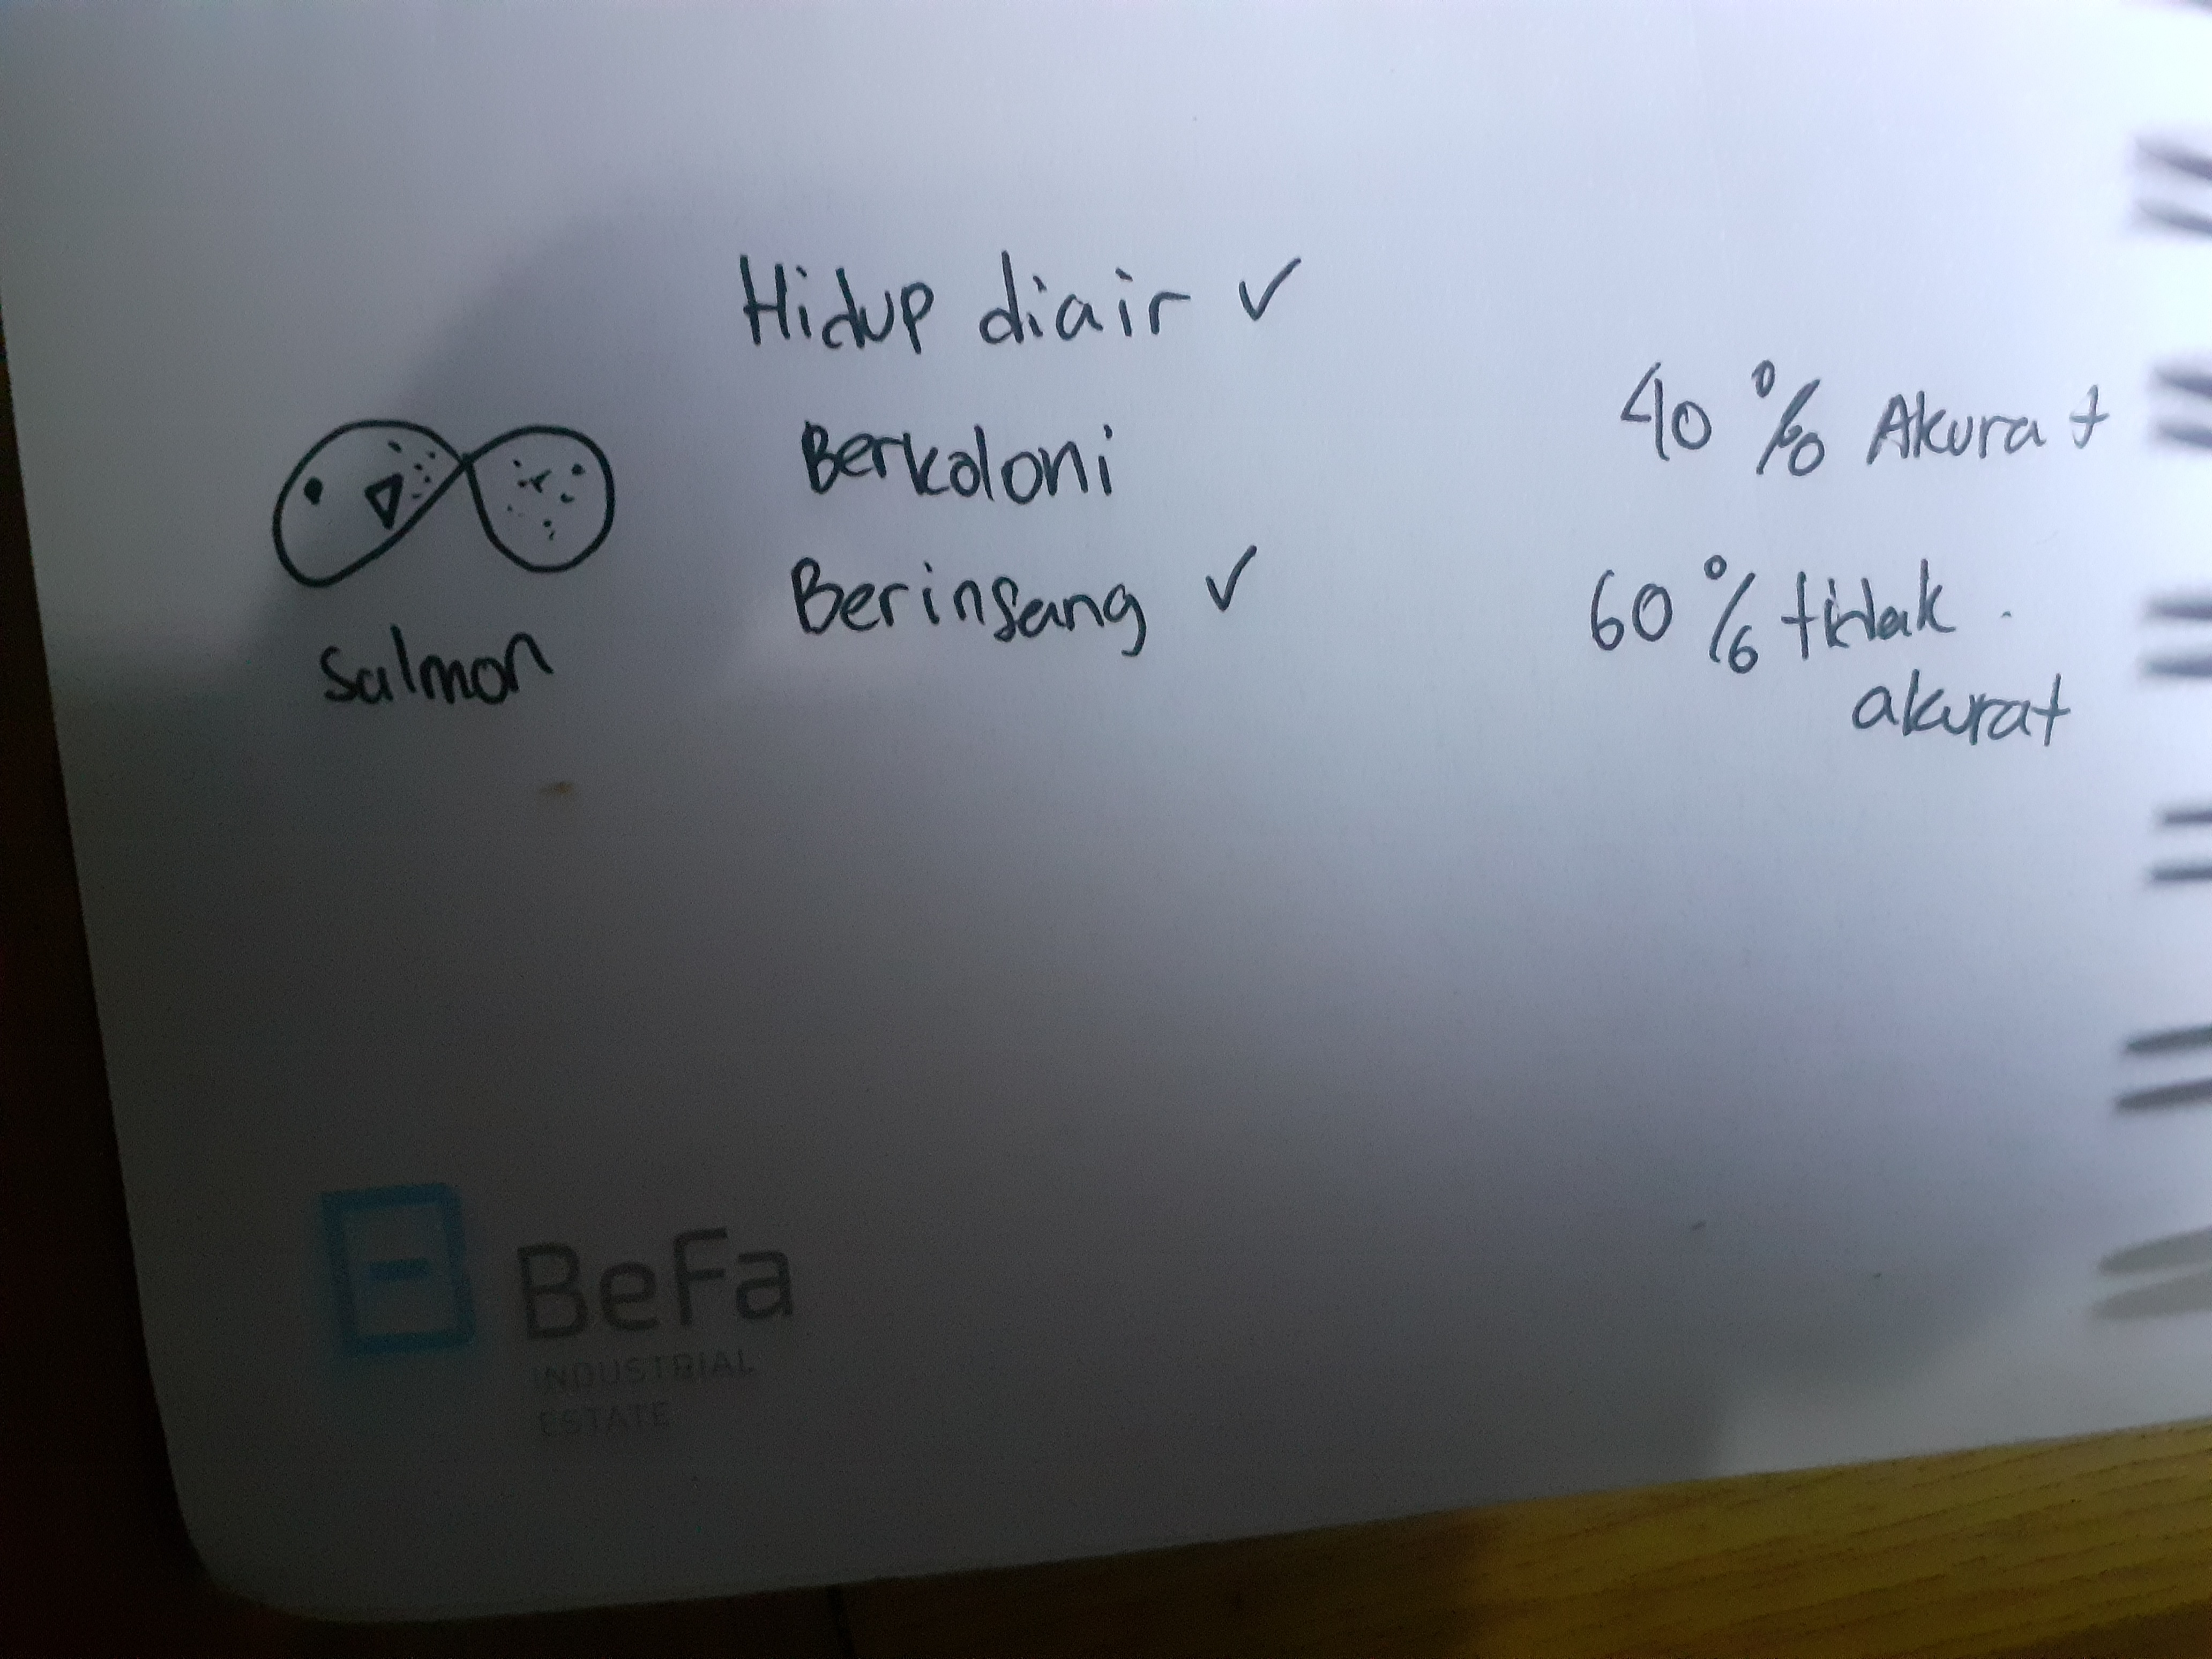 Hidup diair ✓
Berkoloni
Berinsang ✓
Salmon
40 % Akurat
60 % tidak
akurat
BeFa
INDUSTRIAL
ESTATE